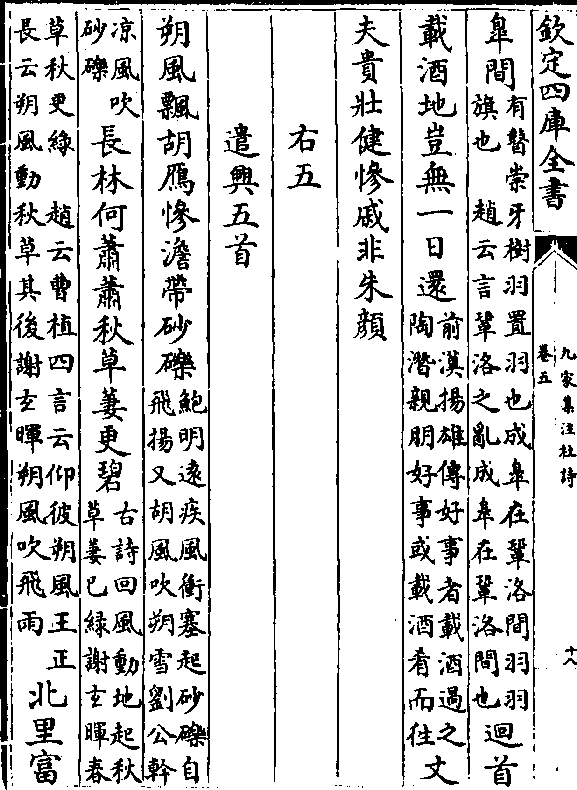 欽定四庫全書
九家集注杜詩
卷五
十八
臯間有瞽崇牙樹羽置羽也成臯在鞏洛間羽羽
旗也　趙云言鞏洛之亂成臯在鞏洛間也迴首
載酒地豈無一日還前漢揚雄傳好事者載酒過之
陶潛親朋好事或載酒肴而往丈
夫貴壯健慘戚非朱顔
右五
遣興五首
朔風飄胡鴈慘澹帶砂礫鮑明遠疾風衝塞起砂礫自
飛揚又胡風吹朔雪劉公幹
凉風吹
砂礫長林何蕭蕭秋草萋更碧古詩回風動地起秋
草萋已緑謝玄暉春
草秋更緑　趙云曹植四言云仰彼朔風王正
長云朔風動秋草其後謝玄暉朔風吹飛雨北里富